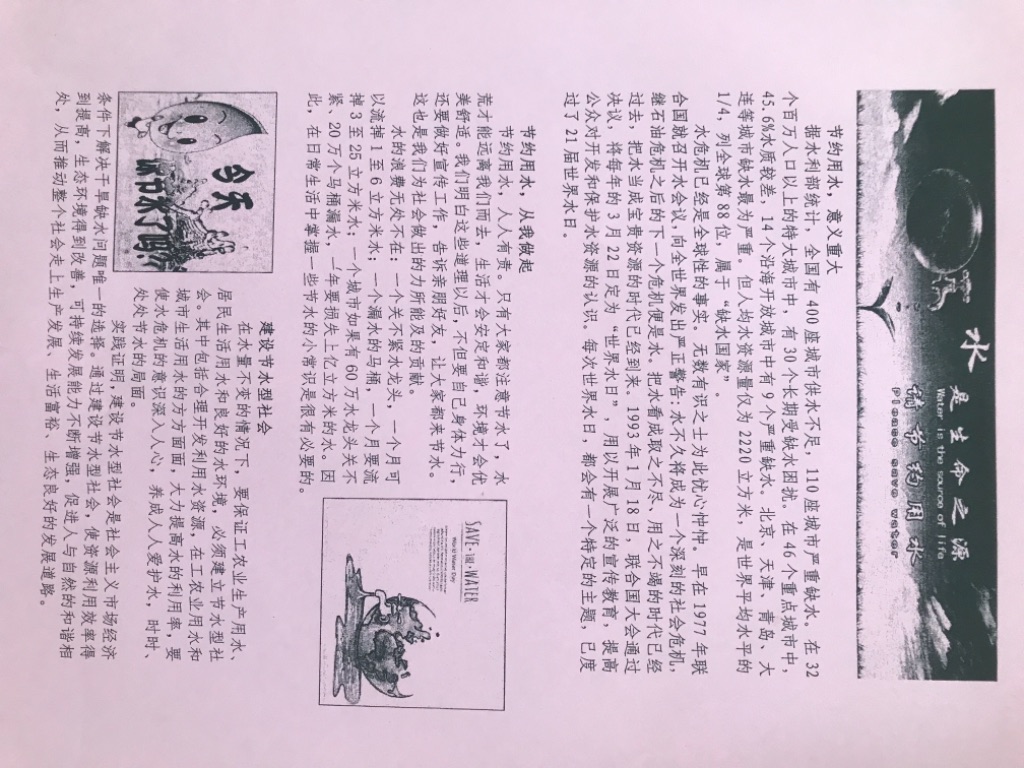 水
是生命之源
Water is the source of life
请节约用水
Please save water
节约用水，意义重大
据水利部统计，全国有 400 座城市供水不足，110 座城市严重缺水。在 32
个百万人口以上的特大城市中，有 30 个长期受缺水困扰。在 46 个重点城市中，
45.6%水质较差，14 个沿海开放城市中有 9 个严重缺水。北京、天津、青岛、大
连等城市缺水最为严重。但人均水资源量仅为 2220 立方米，是世界平均水平的
1/4，列全球第 88 位，属于“缺水国家”。
水危机已经是全球性的事实。无数有识之士为此忧心忡忡。早在 1977 年联
合国就召开水会议，向全世界发出严正警告：水不久将成为一个深刻的社会危机，
继石油危机之后的下一个危机便是水。把水看成取之不尽、用之不竭的时代已经
过去，把水当成宝贵资源的时代已经到来。1993 年 1 月 18 日，联合国大会通过
决议，将每年的 3 月 22 日定为“世界水日”，用以开展广泛的宣传教育，提高
公众对开发和保护水资源的认识。每次世界水日，都会有一个特定的主题，已度
过了 21 届世界水日。
节约用水，从我做起
节约用水，人人有责。只有大家都注意节水了，水
荒才能远离我们而去，生活才会安定和谐，环境才会优
美舒适。我们明白这些道理以后，不但要自己身体力行，
还要做好宣传工作，告诉亲朋好友，让大家都来节水。
这也是我们为社会做出的力所能及的贡献。
水的浪费无处不在：一个关不紧水龙头，一个月可
以流掉 1 至 6 立方米水；一个漏水的马桶，一个月要流
掉 3 至 25 立方米水，一个城市如果有 60 万水龙头关不
紧、20 万个马桶漏水，一年要损失上亿立方米的水。因
此，在日常生活中掌握一些节水的小常识是很有必要的。
SAVE THE WATER
World Water Day
今天
你节水了吗?
建设节水型社会
在水量不变的情况下，要保证工农业生产用水、
居民生活用水和良好的水环境，必须建立节水型社
会。其中包括合理开发利用水资源，在工农业用水和
城市生活用水的方方面面，大力提高水的利用率，要
使水危机的意识深入人心，养成人人爱护水，时时、
处处节水的局面。
实践证明，建设节水型社会是社会主义市场经济
条件下解决干旱缺水问题唯一的选择。通过建设节水型社会，使资源利用效率得
到提高，生态环境得到改善，可持续发展能力不断增强，促进人与自然的和谐相
处，从而推动整个社会走上生产发展、生活富裕、生态良好的发展道路。